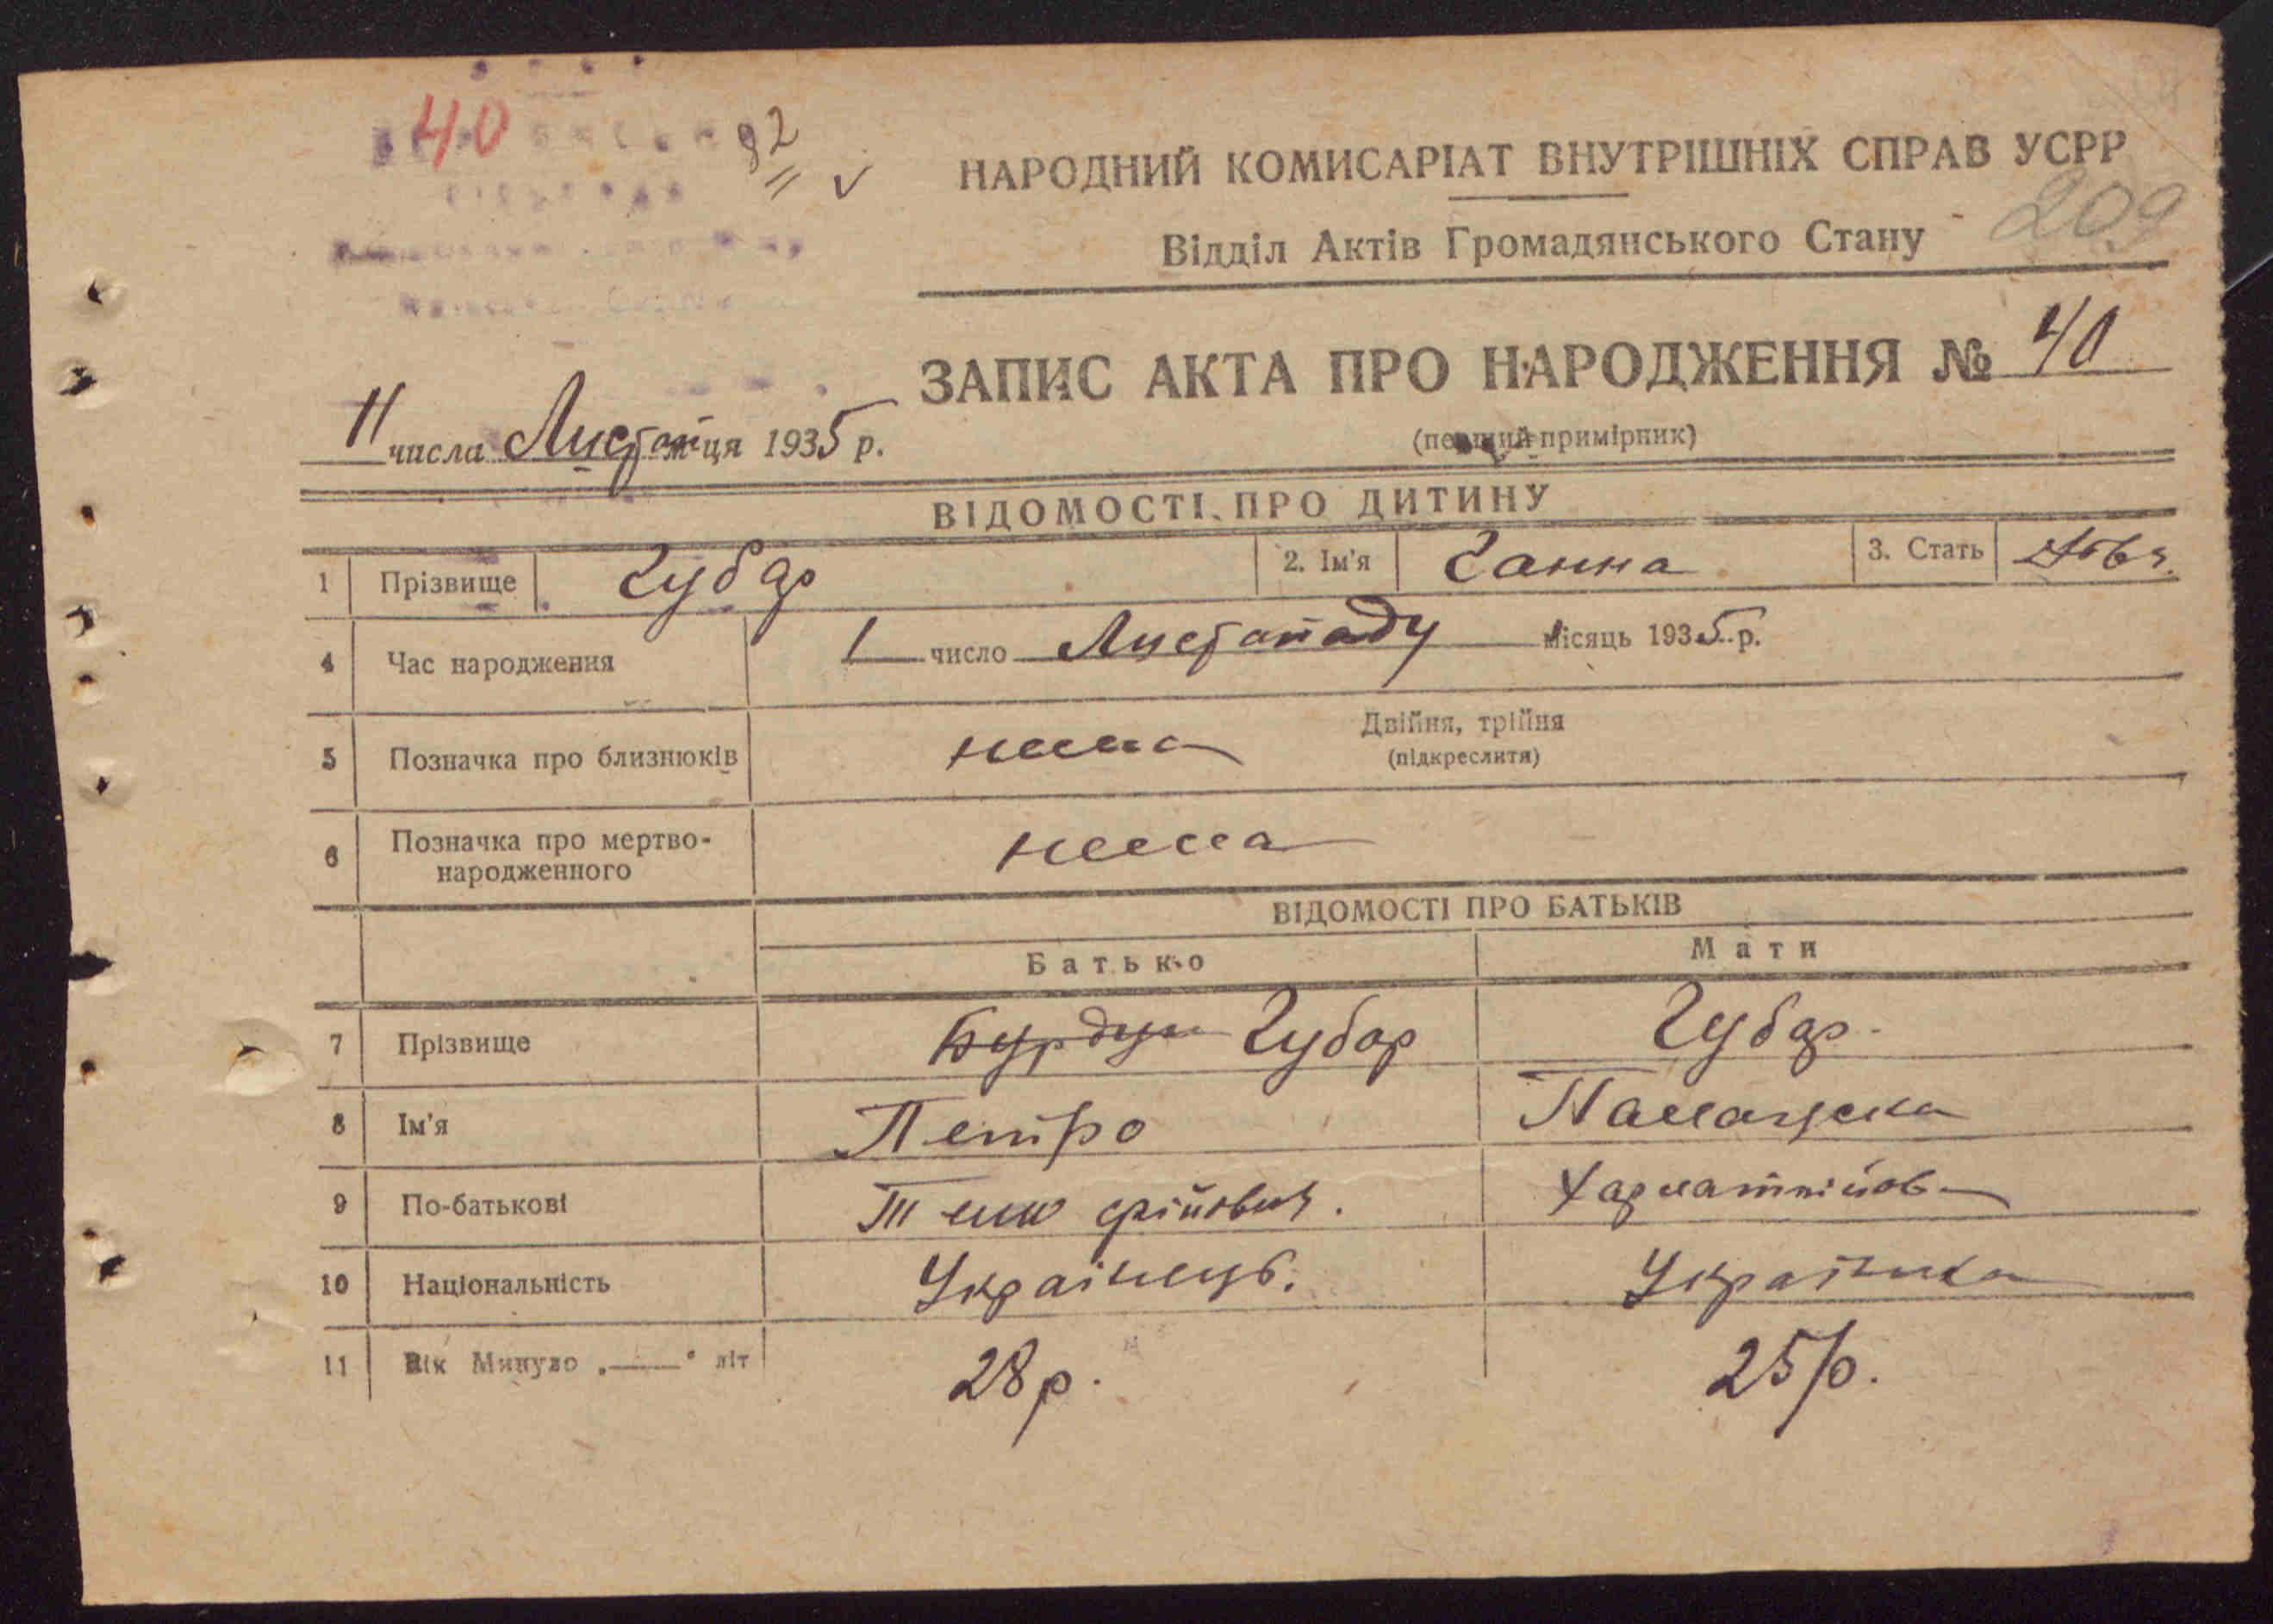 40
92
НАРОДНИЙ КОМИСАРІАТ ВНУТРІШНІХ СПРАВ УСРР
209
Відділ Актів Громадянського Стану
ЗАПИС АКТА ПРО НАРОДЖЕННЯ № 40
(перший примірник)
11 числа Листоп-ця 1935 р.
ВІДОМОСТІ ПРО ДИТИНУ
1 Прізвище Губар 2. Ім'я Ганна 3. Стать
4 Час народження 1 число Листопаду місяць 1935 р.
5 Позначка про близнюків нема Двійня, трійня
(підкреслити)
6 Позначка про мертво-
народженного нема
ВІДОМОСТІ ПРО БАТЬКІВ
Батько Мати
7 Прізвище Бурдун Губар Губар
8 Ім'я Петро Палажка
9 По-батькові Тимофійович.
10 Національність Українець. Українка
11 Вік Минуло „——" літ 28 р. 25 р.